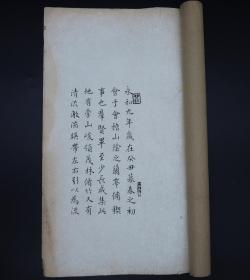 永和九年歲在癸丑暮春之初
會于會稽山陰之蘭亭脩禊
事也羣賢畢至少長咸集此
地有崇山峻領茂林脩竹又有
清流激湍暎帶左右引以為流